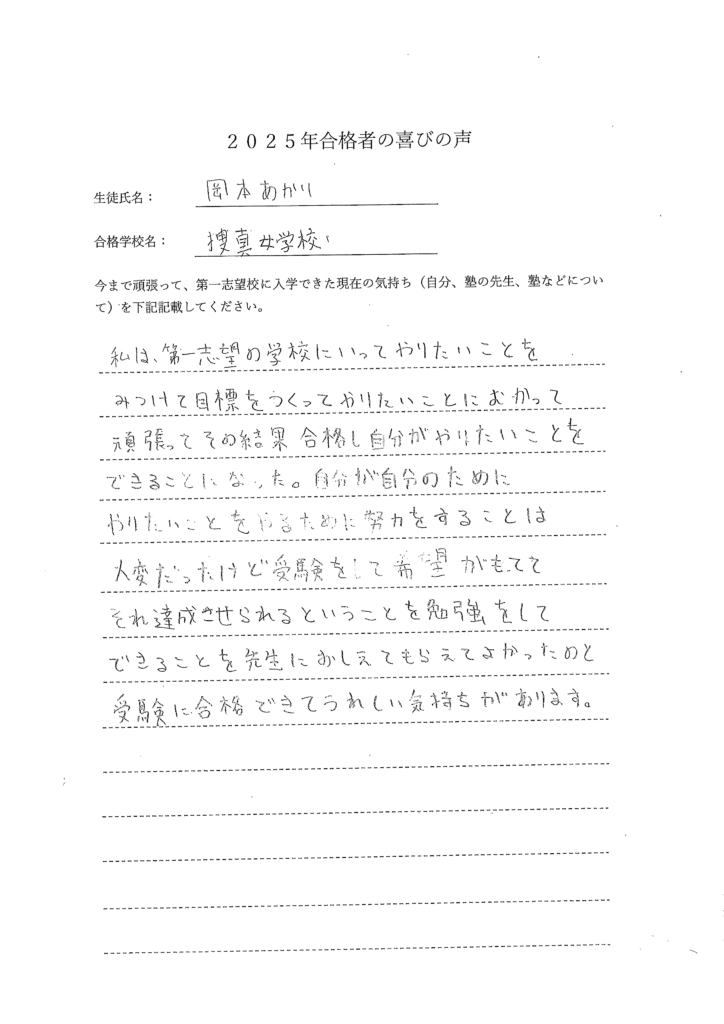 2025年合格者の喜びの声
生徒氏名：岡本あかり
合格学校名：捜真女学校
今まで頑張って、第一志望校に入学できた現在の気持ち（自分、塾の先生、塾などについ
て）を下記記載してください。
私は、第一志望の学校にいってやりたいことを
みつけて目標をつくってやりたいことにむかって
頑張ってその結果合格し自分がやりたいことを
できることになった。自分が自分のために
やりたいことをやるために努力をすることは
大変だったけど受験をして希望がもてて
それ達成させられるということを勉強をして
できることを先生におしえてもらえてよかったのと
受験に合格できてうれしい気持ちがあります。